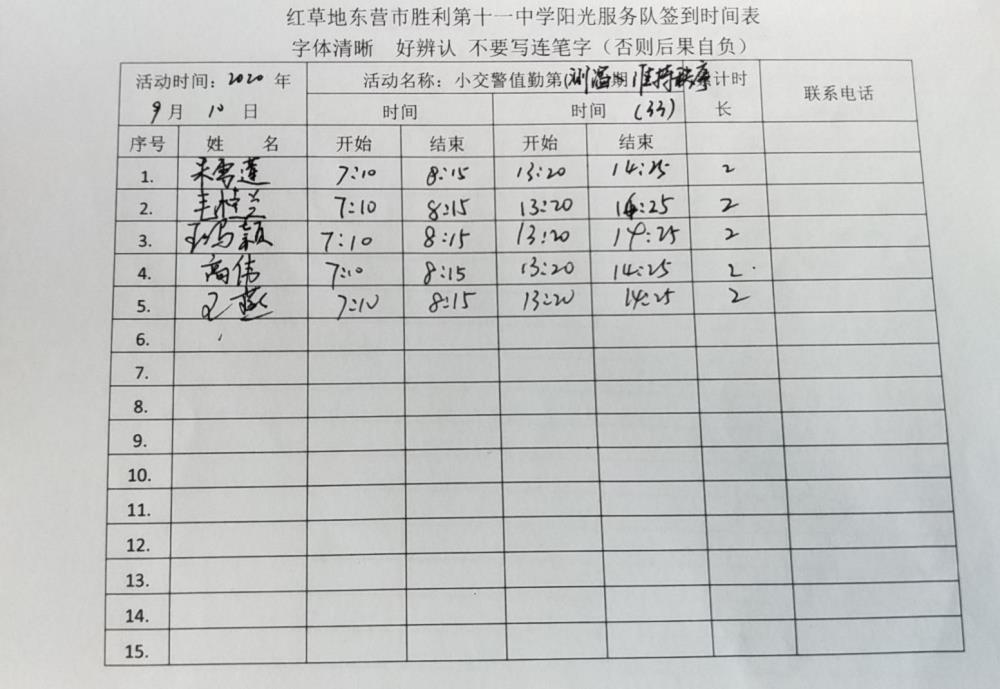 红草地东营市胜利第十一中学阳光服务队签到时间表
字体清晰 好辨认 不要写连笔字（否则后果自负）
活动时间：2020 年 活动名称：小交警值勤第( 测温 期 维持秩序 计时 联系电话
9 月 10 日 时间 时间 (33) 长
序号 姓 名 开始 结束 开始 结束
1. 吴雪莲 7:10 8:15 13:20 14:25 2
2. 7:10 8:15 13:20 14:25 2
3. 7:10 8:15 13:20 14:25 2
4. 高伟 7:10 8:15 13:20 14:25 2
5. 王燕 7:10 8:15 13:20 14:25 2
6.
7.
8.
9.
10.
11.
12.
13.
14.
15.